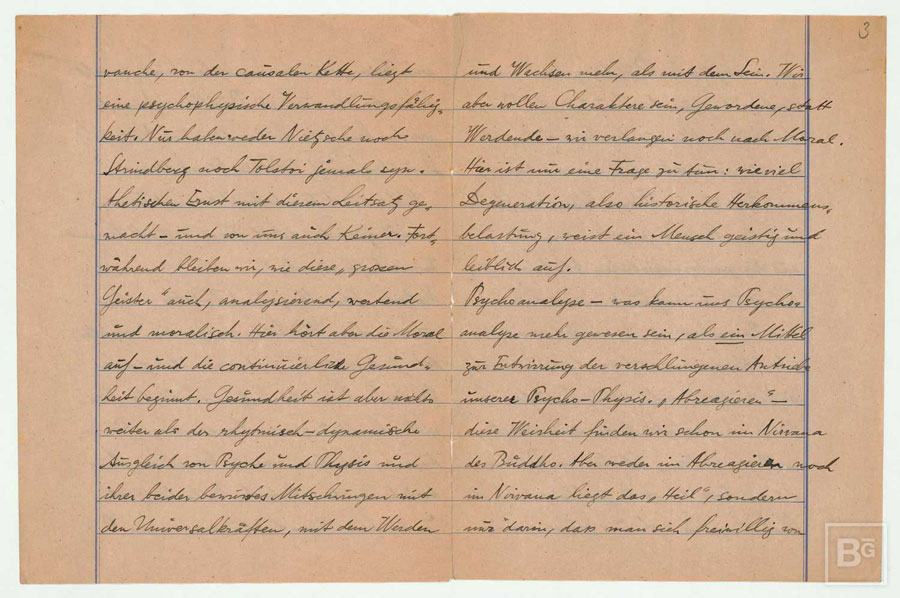 3
vauche, von der causalen Kette, liegt
eine psychophysische Verwandlungsfähig-
keit. Nur haben weder Nietzsche noch
Strindberg noch Tolstoi jemals syn-
thetischen Ernst mit diesem Leitsatz ge-
macht – und von uns auch Keiner. Fort-
während bleiben wir, wie diese „grossen
Geister“ auch, analysierend, wertend
und moralisch. Hier hört aber die Moral
auf – und die continuierliche Gesund-
heit beginnt. Gesundheit ist aber nichts
weiter als der rhytmisch-dynamische
Ausgleich von Psyche und Physis und
ihrer beider bewusstes Mitschwingen mit
den Universalkräften, mit dem Werden
und Wachsen mehr, als mit dem Sein. Wir
aber wollen Charaktere sein, Gewordene, statt
Werdende – wir verlangen noch nach Moral.
Hier ist nur eine Frage zu tun: wieviel
Degeneration, also historische Herkommens-
belastung, weist ein Mensch geistig und
leiblich auf.
Psychoanalyse – was kann uns Psycho-
analyse mehr gewesen sein, als ein Mittel
zur Entwirrung der verschlungenen Antriebe
unserer Psycho-Physis. „Abreagieren“ –
diese Weisheit finden wir schon im Nirvana
des Buddho. Aber weder im Abreagieren noch
im Nirvana liegt das „Heil“, sondern
nur darin, dass man sich freiwillig von
BG